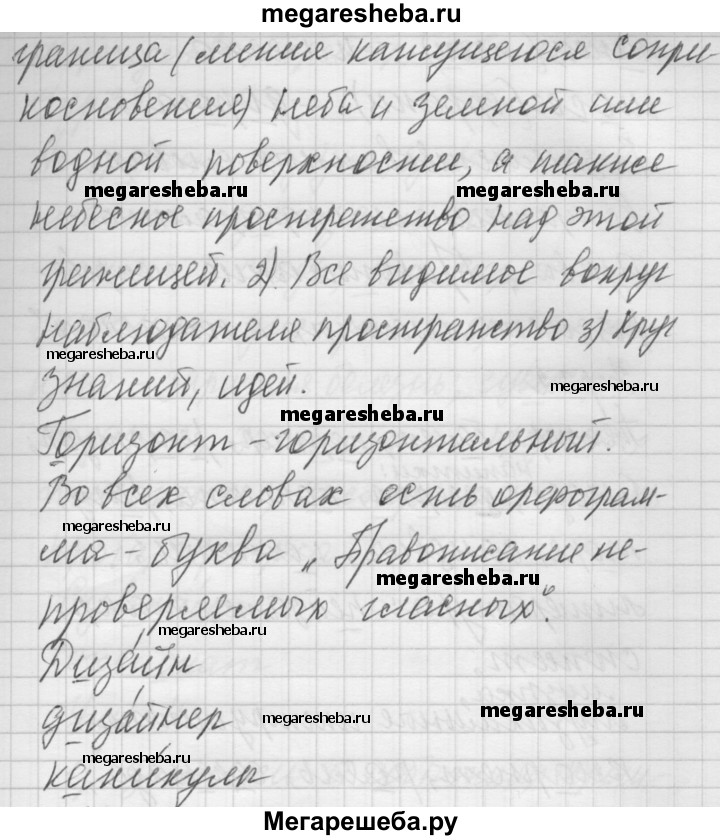 megaresheba.ru
граница (линия кажущегося сопри-
косновения) неба и земной или
водной поверхности, а также
megaresheba.ru megaresheba.ru
небесное пространство над этой
границей. 2) Все видимое вокруг
наблюдателя пространство 3) Круг
megaresheba.ru megaresheba.ru
знаний, идей.
megaresheba.ru
Горизонт - горизонтальный.
Во всех словах есть орфограм-
megaresheba.ru megaresheba.ru
ма - буква „Правописание не-
megaresheba.ru
проверяемых гласных".
megaresheba.ru
Дизайн
дизайнер megaresheba.ru megaresheba.ru
megaresheba.ru
каникулы
Мегарешеба.ру